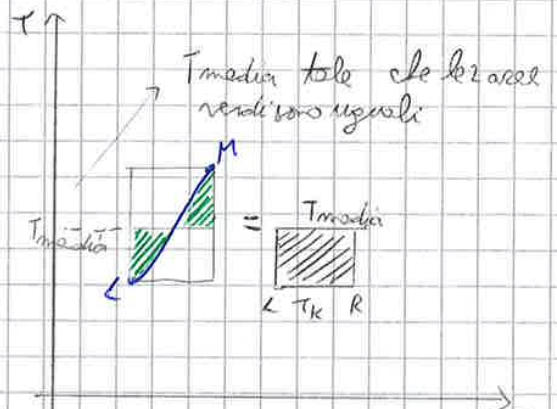 T
Tmedia tale che le 2 aree
verdi sono uguali
M
Tmedia
=
Tmedia
L
L TK R